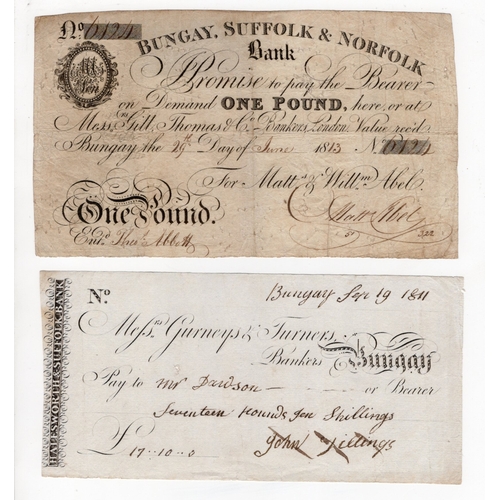 No. 6124
BUNGAY, SUFFOLK & NORFOLK
Bank
I Promise to pay the Bearer
on Demand ONE POUND, here, or at
Messrs Gill, Thomas & Co. Bankers, London. Value recd.
Bungay the 29th Day of June 1813 No. 6124
For Mattw. & Willm. Abel.
One Pound.
Matt Abel
Entd. Thos. Abbott
322
No.
Bungay Sep 19 1811
Messrs Gurneys & Turners,
Bankers Bungay
Pay to Mr Dawson or Bearer
Seventeen Pounds Ten Shillings
£ 17..10..0
John Tillings
HALESWORTH & SUFFOLK BANK